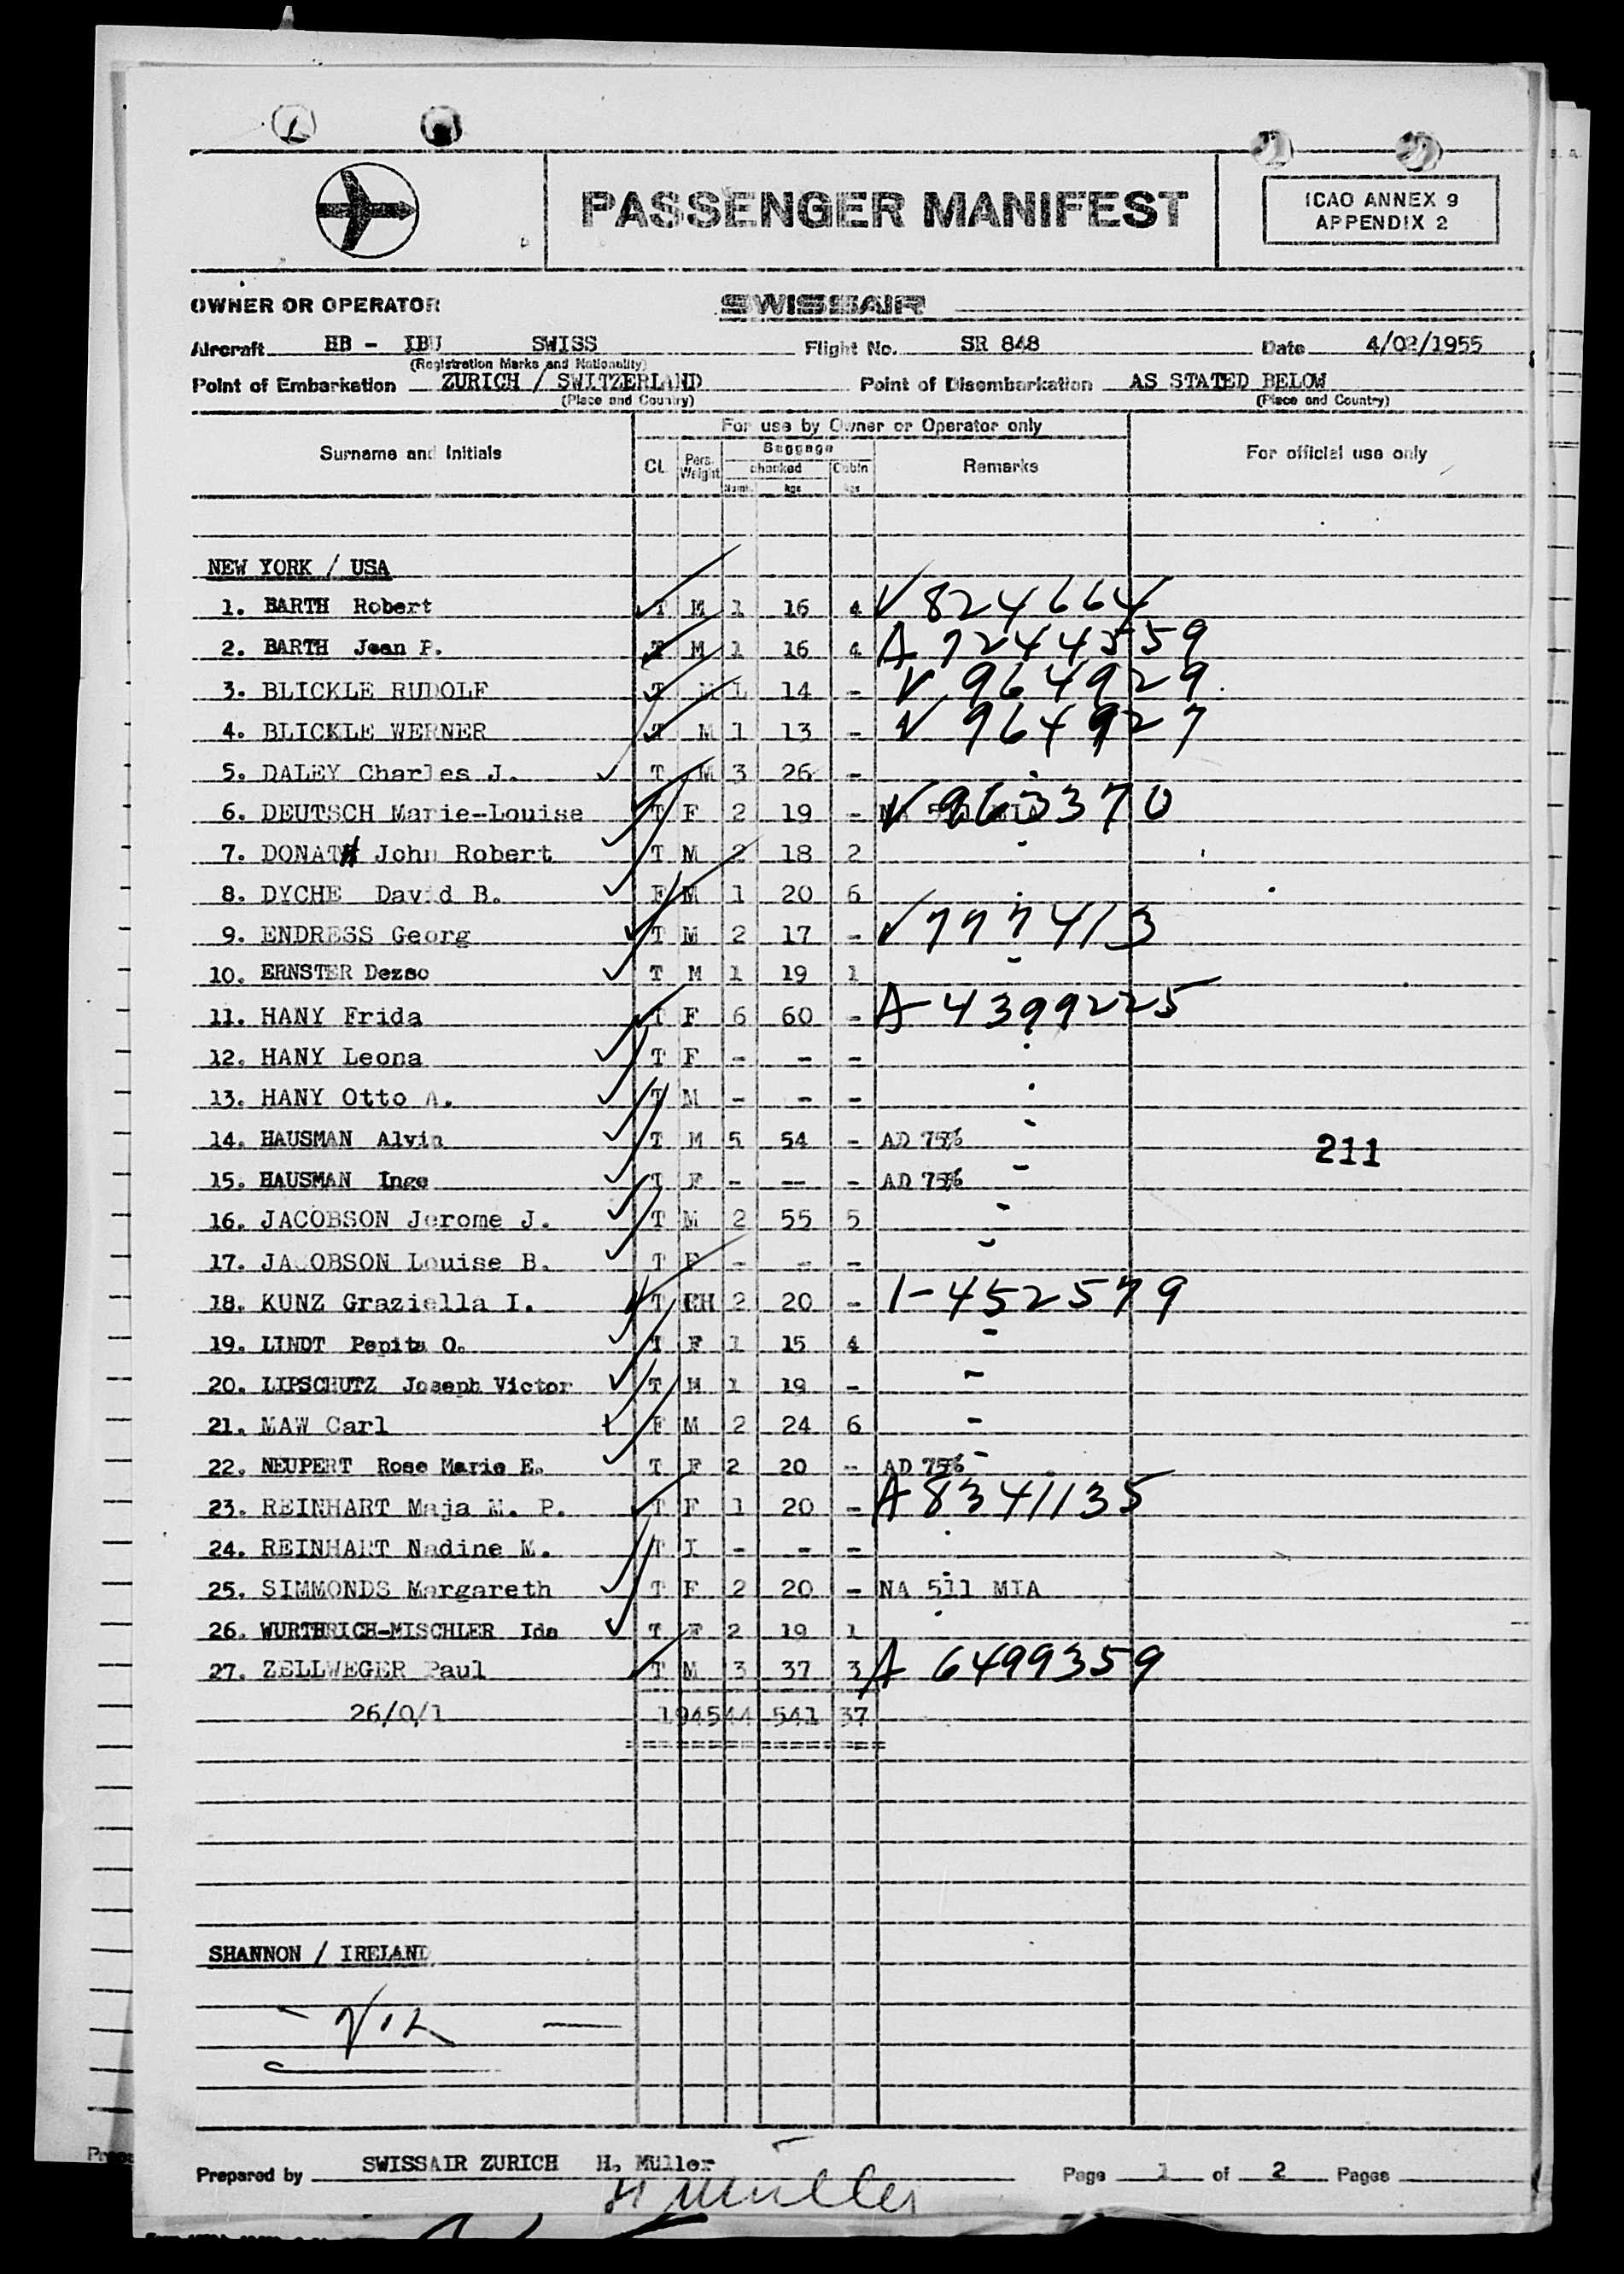 PASSENGER MANIFEST
ICAO ANNEX 9
APPENDIX 2
OWNER OR OPERATOR SWISSAIR
Aircraft HB - IBU SWISS Flight No. SR 848 Date 4/02/1955
(Registration Marks and Nationality)
Point of Embarkation ZURICH / SWITZERLAND Point of Disembarkation AS STATED BELOW
(Place and Country) (Place and Country)
For use by Owner or Operator only
Surname and Initials Cl. Pers. Weight Baggage checked Numb. kgs Cabin kgs Remarks For official use only
NEW YORK / USA
1. BARTH Robert T M 1 16 4 V 824664
2. BARTH Jean P. T M 1 16 4 A 7244559
3. BLICKLE RUDOLF T M 1 14 - V 964929
4. BLICKLE WERNER T M 1 13 - V 964927
5. DALEY Charles J. T M 3 26 -
6. DEUTSCH Marie-Louise T F 2 19 - V 963370
7. DONATH John Robert T M 2 18 2
8. DYCHE David B. F M 1 20 6
9. ENDRESS Georg T M 2 17 - V 777413
10. ERNSTER Dezso T M 1 19 1 -
11. HANY Frida T F 6 60 - A-4399225
12. HANY Leona T F - - -
13. HANY Otto A. T M - - -
14. HAUSMAN Alvin T M 5 54 - AD 75% - 211
15. HAUSMAN Inge T F - -- - AD 75% -
16. JACOBSON Jerome J. T M 2 55 5 -
17. JACOBSON Louise B. T F - - - -
18. KUNZ Graziella I. T EH 2 20 - 1-452579
19. LINDT Pepita O. T F 1 15 4 -
20. LIPSCHUTZ Joseph Victor T M 1 19 - -
21. MAW Carl F M 2 24 6 -
22. NEUPERT Rose Marie E. T F 2 20 - AD 75% -
23. REINHART Maja M. P. T F 1 20 - A 8341135
24. REINHART Nadine M. T I - - -
25. SIMMONDS Margareth T F 2 20 - NA 511 MIA
26. WURTHRICH-MISCHLER Ida T F 2 19 1
27. ZELLWEGER Paul T M 3 37 3 A 6499359
26/0/1 1945 44 541 37
SHANNON / IRELAND
- Nil -
Prepared by SWISSAIR ZURICH H. Müller Page 1 of 2 Pages
H Müller